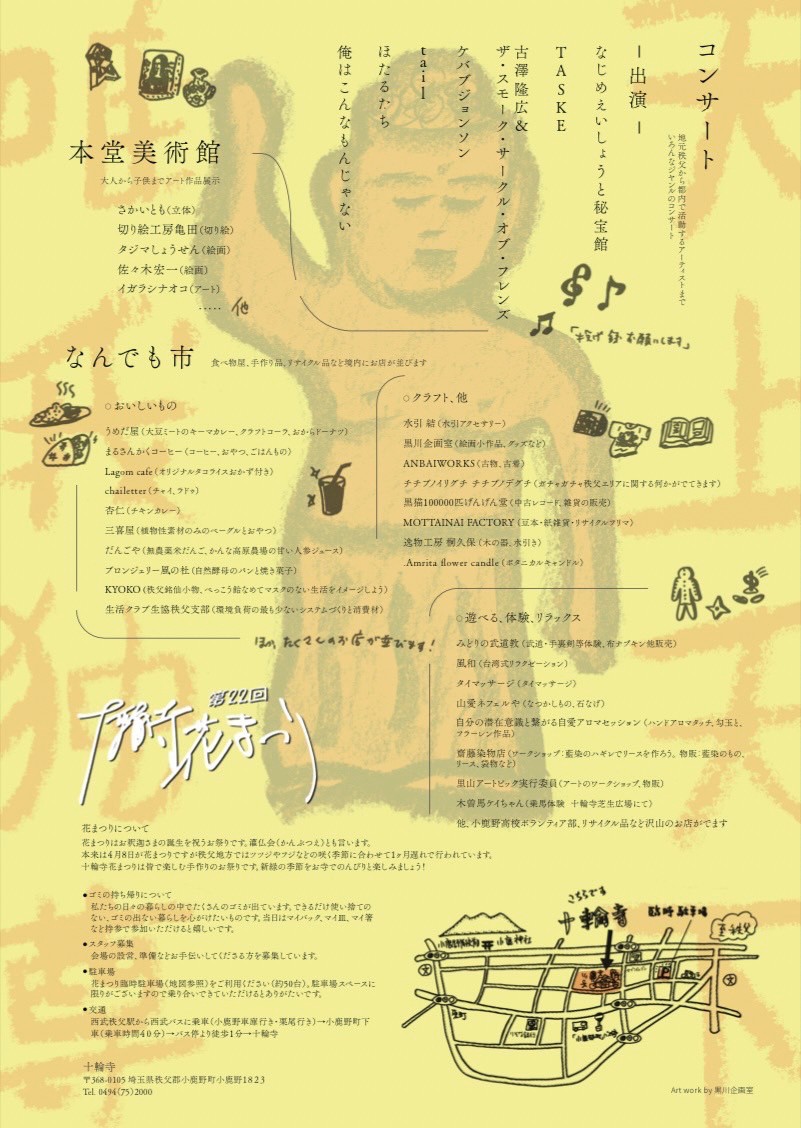 コンサート
地元秩父から都内で活動するアーティストまで
いろんなジャンルのコンサート
ー出演ー
なじめえいしょうと秘宝館
TASKE
古澤隆広＆
ザ・スモーク・サークル・オブ・フレンズ
ケバブジョンソン
tail
ほたるたち
俺はこんなもんじゃない
本堂美術館
大人から子供までアート作品展示
さかいとも（立体）
切り絵工房亀田（切り絵）
タジマしょうせん（絵画）
佐々木宏一（絵画）
イガラシナオコ（アート）
‥‥‥他
なんでも市
食べ物屋、手作り品、リサイクル品など境内にお店が並びます
○おいしいもの
うめだ屋（大豆ミートのキーマカレー、クラフトコーラ、おからドーナツ）
まるさんかくコーヒー（コーヒー、おやつ、ごはんもの）
Lagom cafe（オリジナルタコライスおかず付き）
chailetter（チャイ、ラドゥ）
杏仁（チキンカレー）
三喜屋（植物性素材のみのベーグルとおやつ）
だんごや（無農薬米だんご、かんな高原農場の甘い人参ジュース）
ブロンジェリー風の杜（自然酵母のパンと焼き菓子）
KYOKO（秩父銘仙小物、べっこう飴なめてマスクのない生活をイメージしよう）
生活クラブ生協秩父支部（環境負荷の最も少ないシステムづくりと消費材）
ほか、たくさんのお店が並びます！
○クラフト、他
水引 結（水引アクセサリー）
黒川企画室（絵画小作品、グッズなど）
ANBAIWORKS（古物、古着）
チチブノイリグチ チチブノデグチ（ガチャガチャ秩父エリアに関する何かがでてきます）
黒猫100000匹げんげん堂（中古レコード、雑貨の販売）
MOTTAINAI FACTORY（豆本・紙雑貨・リサイクルフリマ）
逸物工房 桐久保（木の器、水引き）
.Amrita flower candle（ボタニカルキャンドル）
○遊べる、体験、リラックス
みどりの武道教（武道・手裏剣等体験、布ナプキン他販売）
風和（台湾式リラクゼーション）
タイマッサージ（タイマッサージ）
山愛ネフェルや（なつかしもの、石なげ）
自分の潜在意識と繋がる自愛アロマセッション（ハンドアロマタッチ、勾玉と、
フラーレン作品）
齋藤染物店（ワークショップ：藍染のハギレでリースを作ろう。 物販：藍染のもの、
リース、袋物など）
里山アートピック実行委員（アートのワークショップ、物販）
木曽馬ケイちゃん（乗馬体験 十輪寺芝生広場にて）
他、小鹿野高校ボランティア部、リサイクル品など沢山のお店がでます
第22回
十輪寺花まつり
花まつりについて
花まつりはお釈迦さまの誕生を祝うお祭りです。灌仏会（かんぶつえ）とも言います。
本来は4月8日が花まつりですが秩父地方ではツツジやフジなどの咲く季節に合わせて1ヶ月遅れで行われています。
十輪寺花まつりは皆で楽しむ手作りのお祭りです。新緑の季節をお寺でのんびりと楽しみましょう！
●ゴミの持ち帰りについて
私たちの日々の暮らしの中でたくさんのゴミが出ています。できるだけ使い捨ての
ない、ゴミの出ない暮らしを心がけたいものです。当日はマイバック、マイ皿、マイ箸
など持参で参加いただけると嬉しいです。
●スタッフ募集
会場の設営、準備などお手伝いしてくださる方を募集しています。
●駐車場
花まつり臨時駐車場（地図参照）をご利用ください（約50台）。駐車場スペースに
限りがございますので乗り合いできていただけるとありがたいです。
●交通
西武秩父駅から西武バスに乗車（小鹿野車庫行き・栗尾行き）→小鹿野町下
車（乗車時間40分）→バス停より徒歩1分→十輪寺
十輪寺
〒368-0105 埼玉県秩父郡小鹿野町小鹿野1823
Tel. 0494（75）2000
こちらです
十輪寺
臨時駐車場
至秩父
小鹿神社
Art work by 黒川企画室